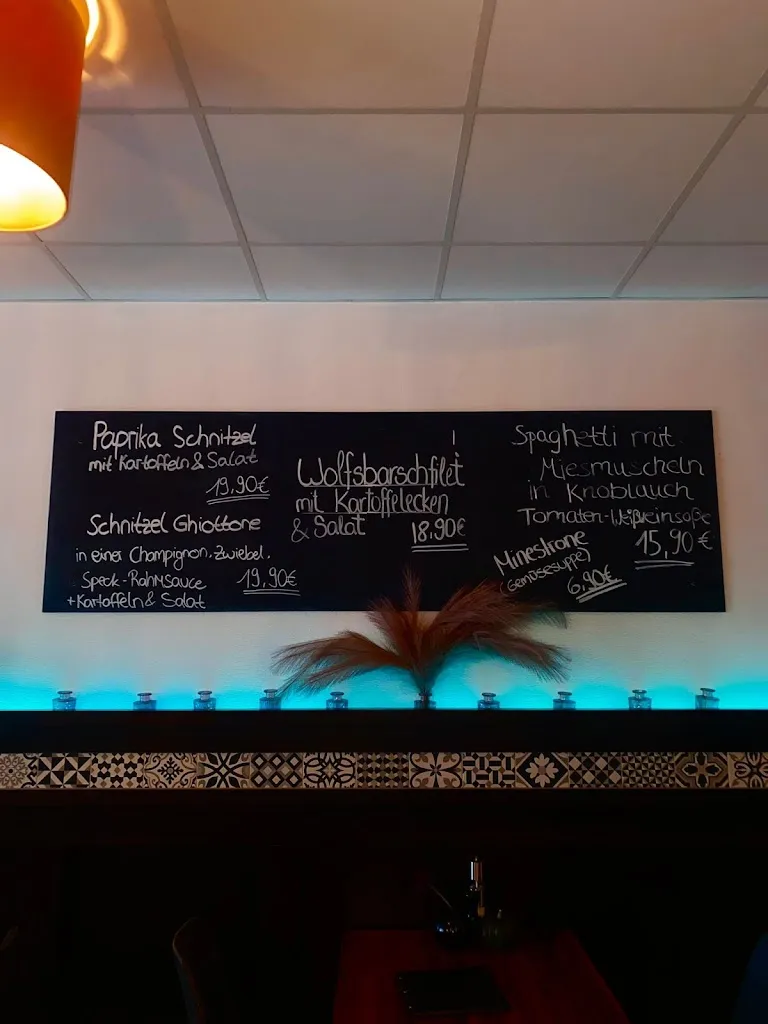 Paprika Schnitzel
mit Kartoffeln & Salat
19,90€
Schnitzel Ghiottone
in einer Champignon, Zwiebel,
Speck-Rahmsauce
19,90€
+Kartoffeln & Salat
Wolfsbarschfilet
mit Kartoffelecken
& Salat
18,90€
Spaghetti mit
Miesmuscheln
in Knoblauch
Tomaten-Weißweinsoße
15,90€
Minestrone
(Gemüsesuppe)
6,90€